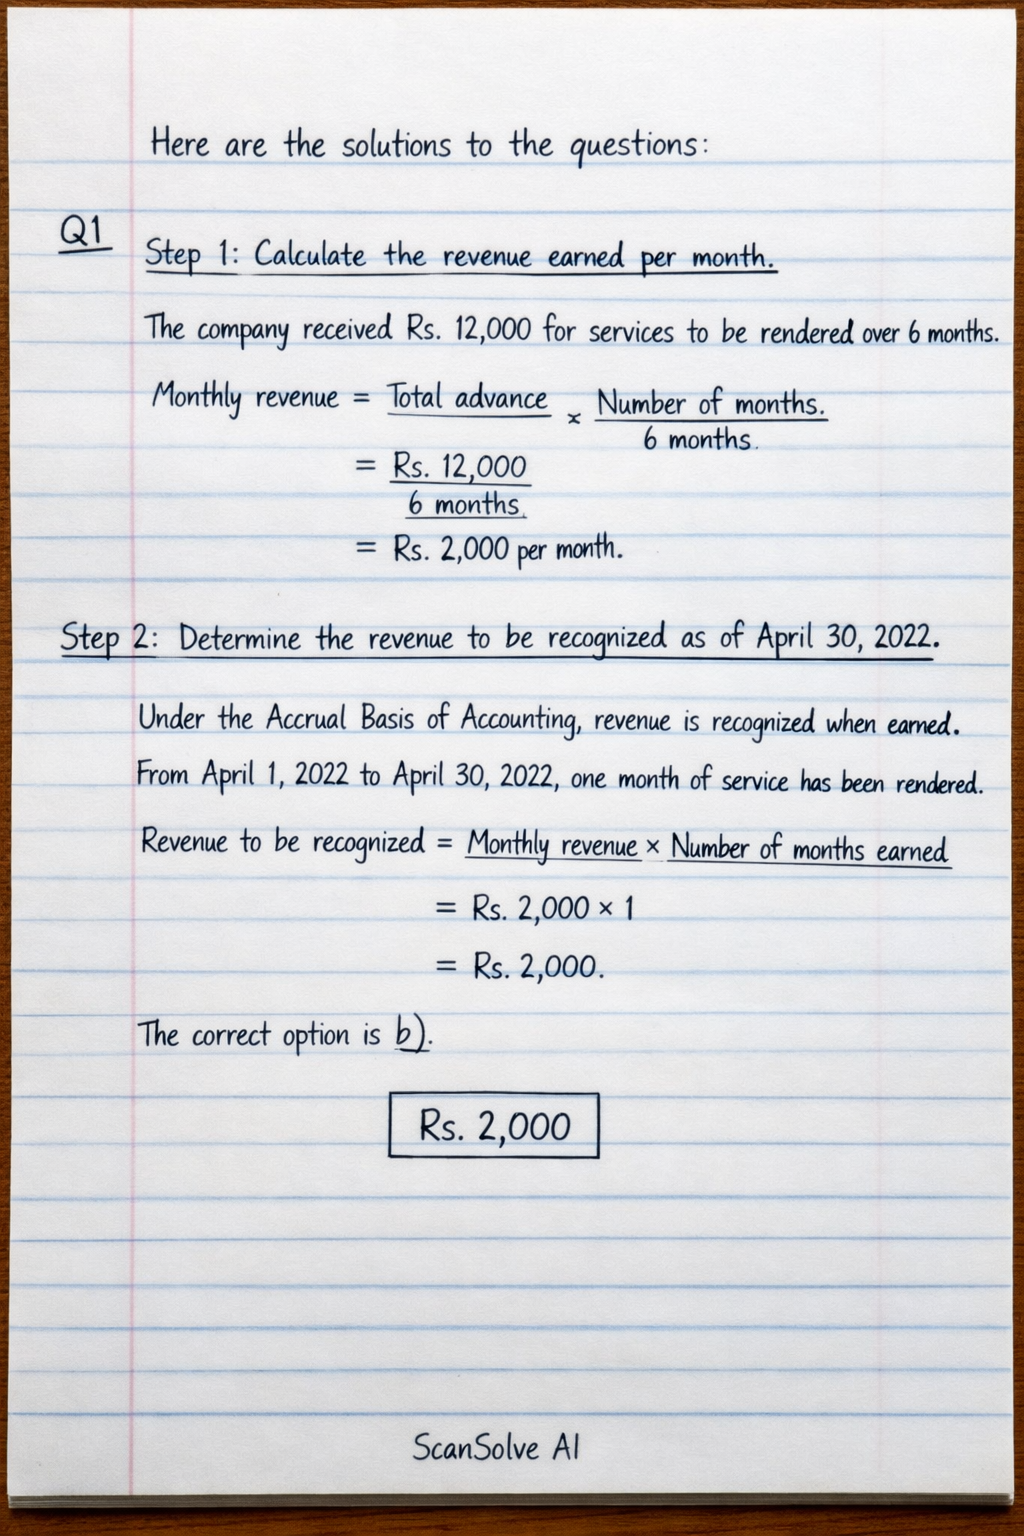 Here are the solutions to the questions:
Q1
Step 1: Calculate the revenue earned per month.
The company received Rs. 12,000 for services to be rendered over 6 months.
Monthly revenue = Total advance × Number of months.
6 months.
= Rs. 12,000
6 months.
= Rs. 2,000 per month.
Step 2: Determine the revenue to be recognized as of April 30, 2022.
Under the Accrual Basis of Accounting, revenue is recognized when earned.
From April 1, 2022 to April 30, 2022, one month of service has been rendered.
Revenue to be recognized = Monthly revenue × Number of months earned
= Rs. 2,000 × 1
= Rs. 2,000.
The correct option is b).
Rs. 2,000
ScanSolve AI